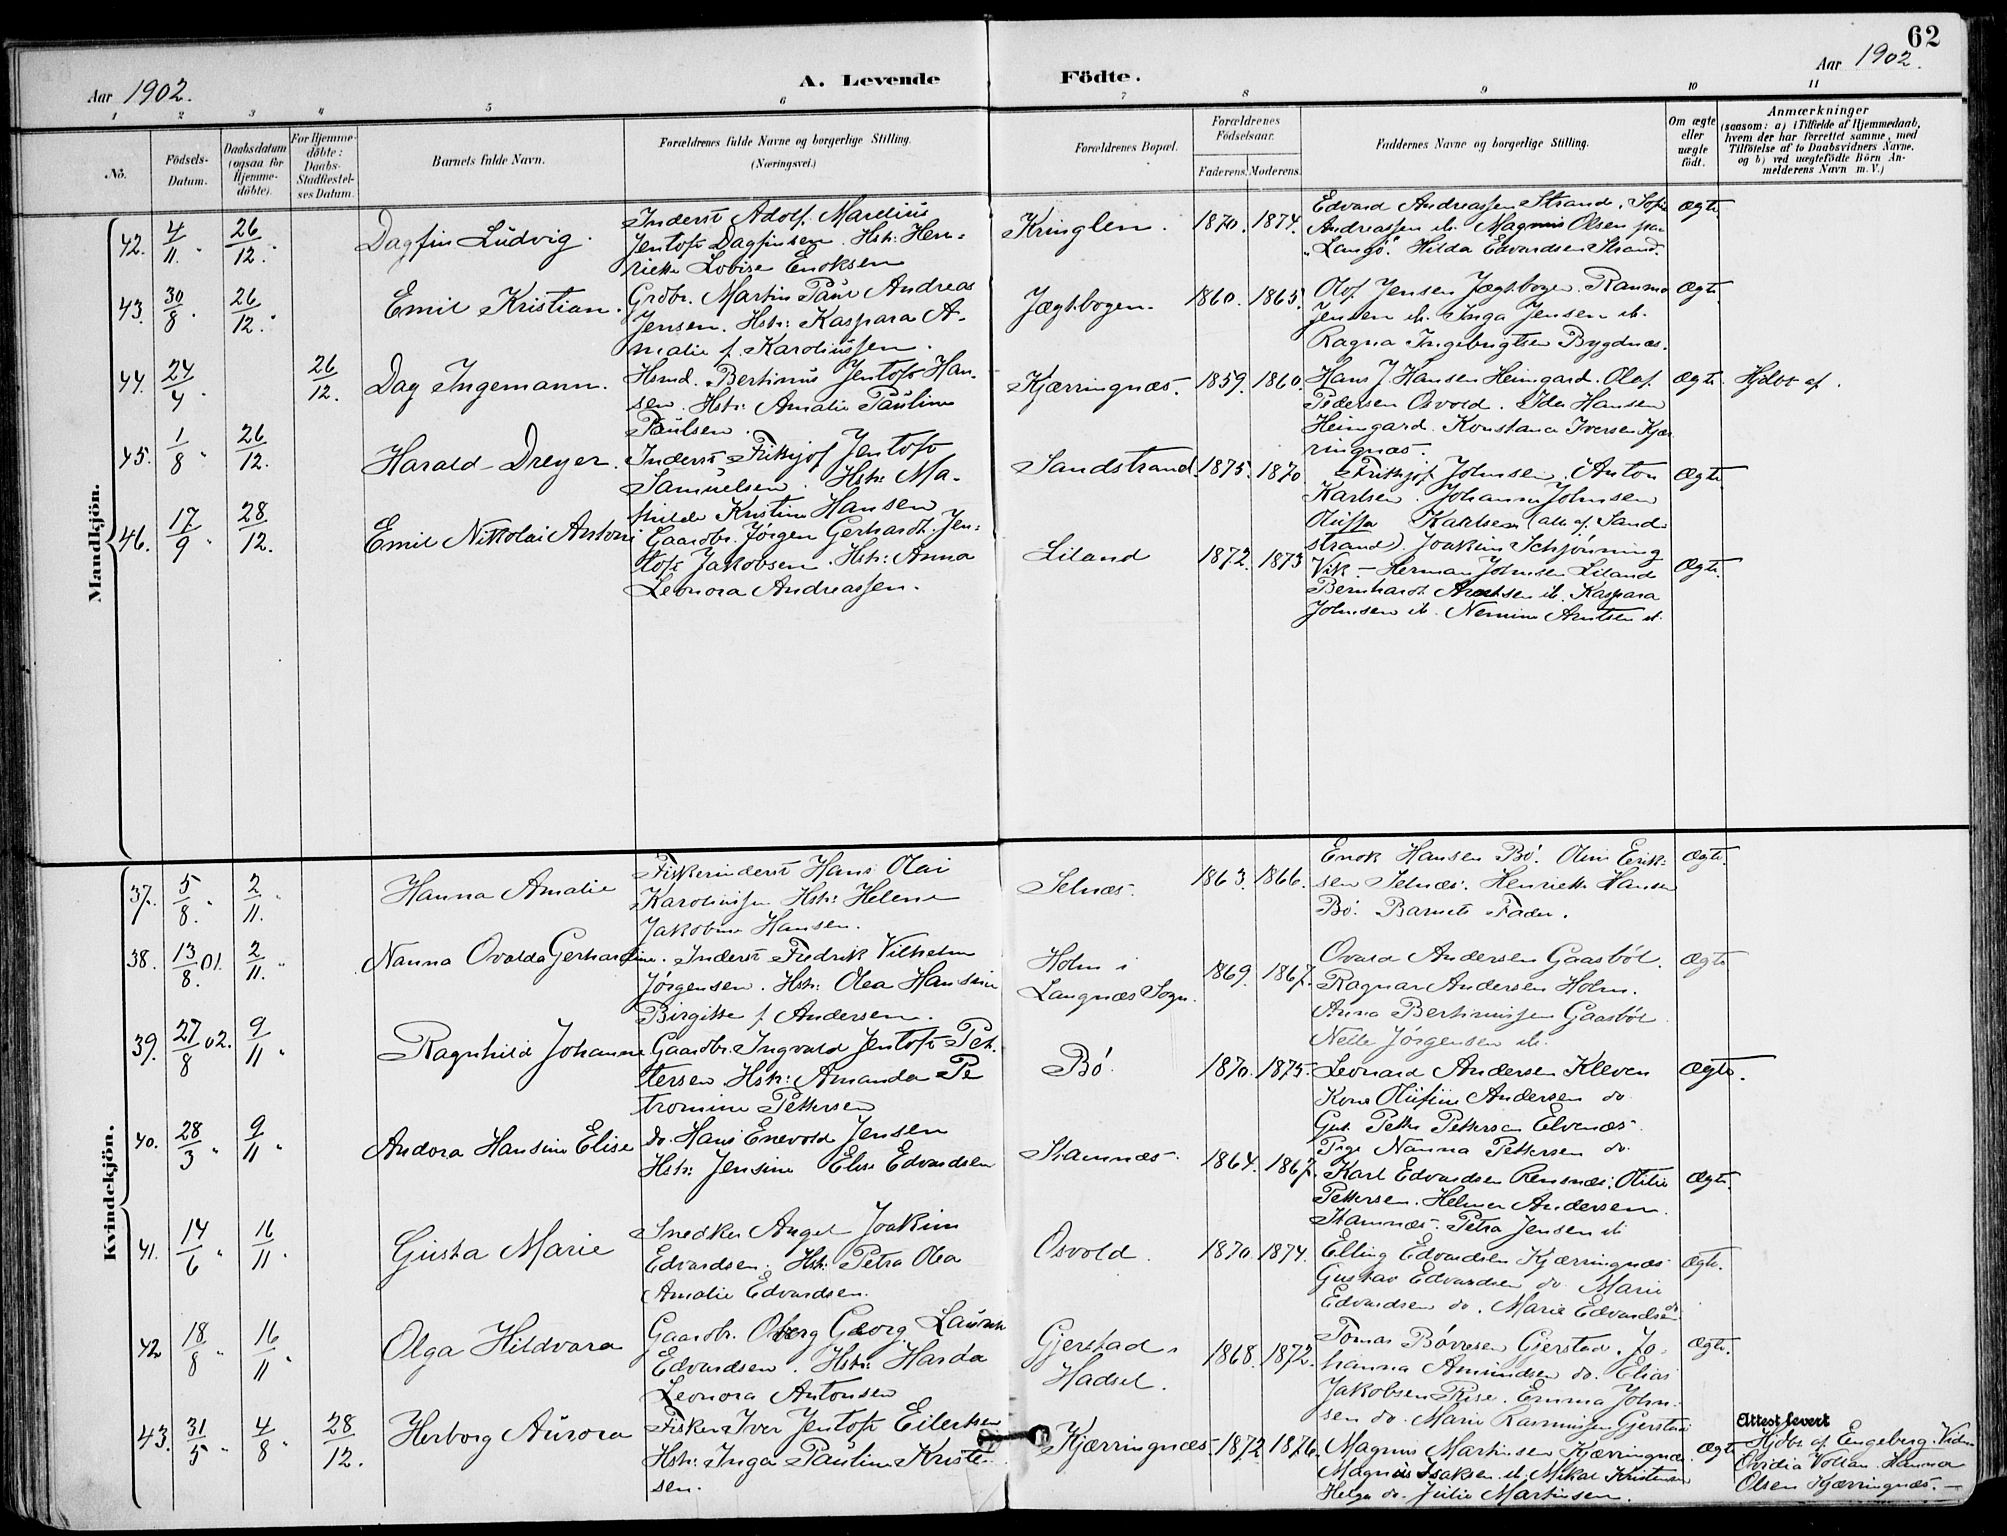 62
Aar 1902.
A. Levende Födte.
Aar 1902.
1 2 3 4 5 6 7 8 9 10 11
No.
Födsels-Datum.
Daabsdatum (ogsaa för Hjemme-döbte).
For Hjemme-döbte: Daabs-Stadfæstel-ses Datum.
Barnets fulde Navn.
Forældrenes fulde Navne og borgerlige Stilling. (Næringsvei.)
Forældrenes Bopæl.
Forældrenes Födselsaar.
Faderens. Moderens.
Faddernes Navne og borgerlige Stilling.
Om ægte eller uægte födt.
Anmærkninger
(saasom: a) i Tilfælde af Hjemmedaab,
hvem der har forrettet samme, med
Tilföielse af to Daabsvidners Navne,
og b) ved uægtefödte Börn An-
melderens Navn m. V.)
Mandkjön.
42. 4/11. 26/12. Dagfin Ludvig. Inderst Adolf Marelius
Jentoft Dagfinsen. Hstr: Hen-
riette Lovise Enoksen
Kringlen. 1870. 1874.
Edvard Andreassen Strand. Sofie
Andreassen ib. Magnus Olsen paa
"Langö". Hilda Edvardsen Strand.
Ægte
43. 30/8. 26/12. Emil Kristian. Grdbr. Martin Paul Andreas
Jensen. Hstr: Kaspara A-
malie f. Karoliussen.
Jægtsbogen. 1860. 1865.
Olof Jensen Jægtsbogen.
Jensen ib. Inga Jensen ib.
Ragna Ingebrigtsen Bygdnæs.
Ægte.
44. 24/4. 26/12. Dag Ingemann. Hsmd. Bertinus Jentoft Han-
sen. Hstr: Amalie Pauline
Paulsen.
Kjærringnæs. 1859. 1860.
Hans J. Hansen Heimgard. Olaf
Pedersen Osvold. Ida Hansen
Heimgard. Konstance Iversen Kjær
ringnæs.
Ægte. Hjdbt af.
45. 1/8. 26/12. Harald Dreyer. Inderst Fritjof Jentoft
Samuelsen. Hstr: Ma-
thilde Kristine Hansen
Sandstrand. 1875. 1870.
Frithjof Johnsen. Anton
Karlsen. Johanna Johnsen
Karlsen (alle af Sand-
strand). Joakim Schjönning
Ægte
46. 17/9. 28/12. Emil Nikolai Antoni Gaardbr. Jörgen Gerhardt Jen-
toft Jakobsen. Hstr: Anna
Leonora Andreassen.
Liland 1872. 1873
Vik. – Herman Johnsen Liland
Bernhard Arntsen ib. Kaspara
Johnsen ib. Nemine Arntsen ib.
Ægte.
Kvindekjön.
37. 5/8. 2/11. Hanna Amalie Fiskerinderst Hans Olai
Karoliussen Hstr: Helene
Jakobine Hansen.
Selnæs. 1863. 1866.
Enok Hansen Bö. Oline Erik-
sen Selnæs. Henriette Hansen
Bö. Barnets Fader.
Ægte.
38. 13/8. 01. 2/11. Nanna Ovalda Gerhardine. Inderst Fredrik Vilhelm
Jörgensen. Hstr: Olea Hansine
Birgitte f. Andersen.
Holm i
Langnæs Sogn. 1869. 1867.
Ovard Andersen Gaasböl.
Ragnar Andersen Holm.
Anna Bertinussen Gaasböl
Nelle Jörgensen ib.
Ægte
39. 27/8 02. 9/11. Ragnhild Johanne Gaardbr. Ingvald Jentoft Pet-
tersen Hstr: Amanda Pe
tromine Pettersen
Bö. 1870. 1875.
Leonard Andersen Kleven
Kone Andersen do
Gut. Petter Pettersen Elvenæs.
Pige Nanna Pettersen do.
Ægte.
40. 28/3. 9/11. Andora Hansine Elise do. Hans Enevold Jensen
Hstr: Jensine Elise Edvardsen
Stamnæs. 1864. 1867.
Karl Edvardsen Rensnæs. Otilie
Pettersen. Helmer Andersen
Stamnæs. Petra Jensen ib
Ægte.
41. 14/6. 16/11. Gusta Marie Snedker Angel Joakim
Edvardsen. Hstr: Petra Olea
Amalie Edvardsen.
Osvold. 1870. 1874.
Elling Edvardsen Kjærringnæs
Gustav Edvardsen do. Marie
Edvardsen do. Marie Edvardsen do
Ægte.
42 18/8. 16/11. Olga Hildvara Gaardbr. Georg
Edvardsen. Hstr: Harda
Leonora Antonsen
Gjerstad i
Hadsel. 1868. 1872.
Tomas Bövresen Gjerstad. Jo-
hanna Amundsen do. Elias
Jakobsen Rise. Emma John-
sen do. Marie Rasmussen Gjerstad
Ægte.
43. 31/5. 4/8. 28/12. Herborg Aurora Fisker Iver Jentoft Eilertsen
Hstr: Inga Pauline Kristen
sen.
Kjærringnæs. 1872 1876.
Magnus Martinsen Kjærringnæs.
Magnus Isaksen ib. Mikal Kristensen
Helga do. Julie Martinsen.
Ægte
Attest levert
Hjdbt af Engeberg.
Ovidia Hanna
Olsen Kjærringnæs. –